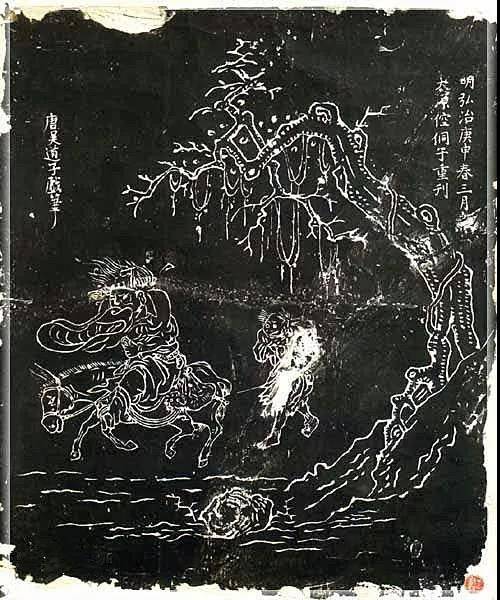 明弘治庚申春三月
太原倥侗子重刊
唐吴道子戯筆